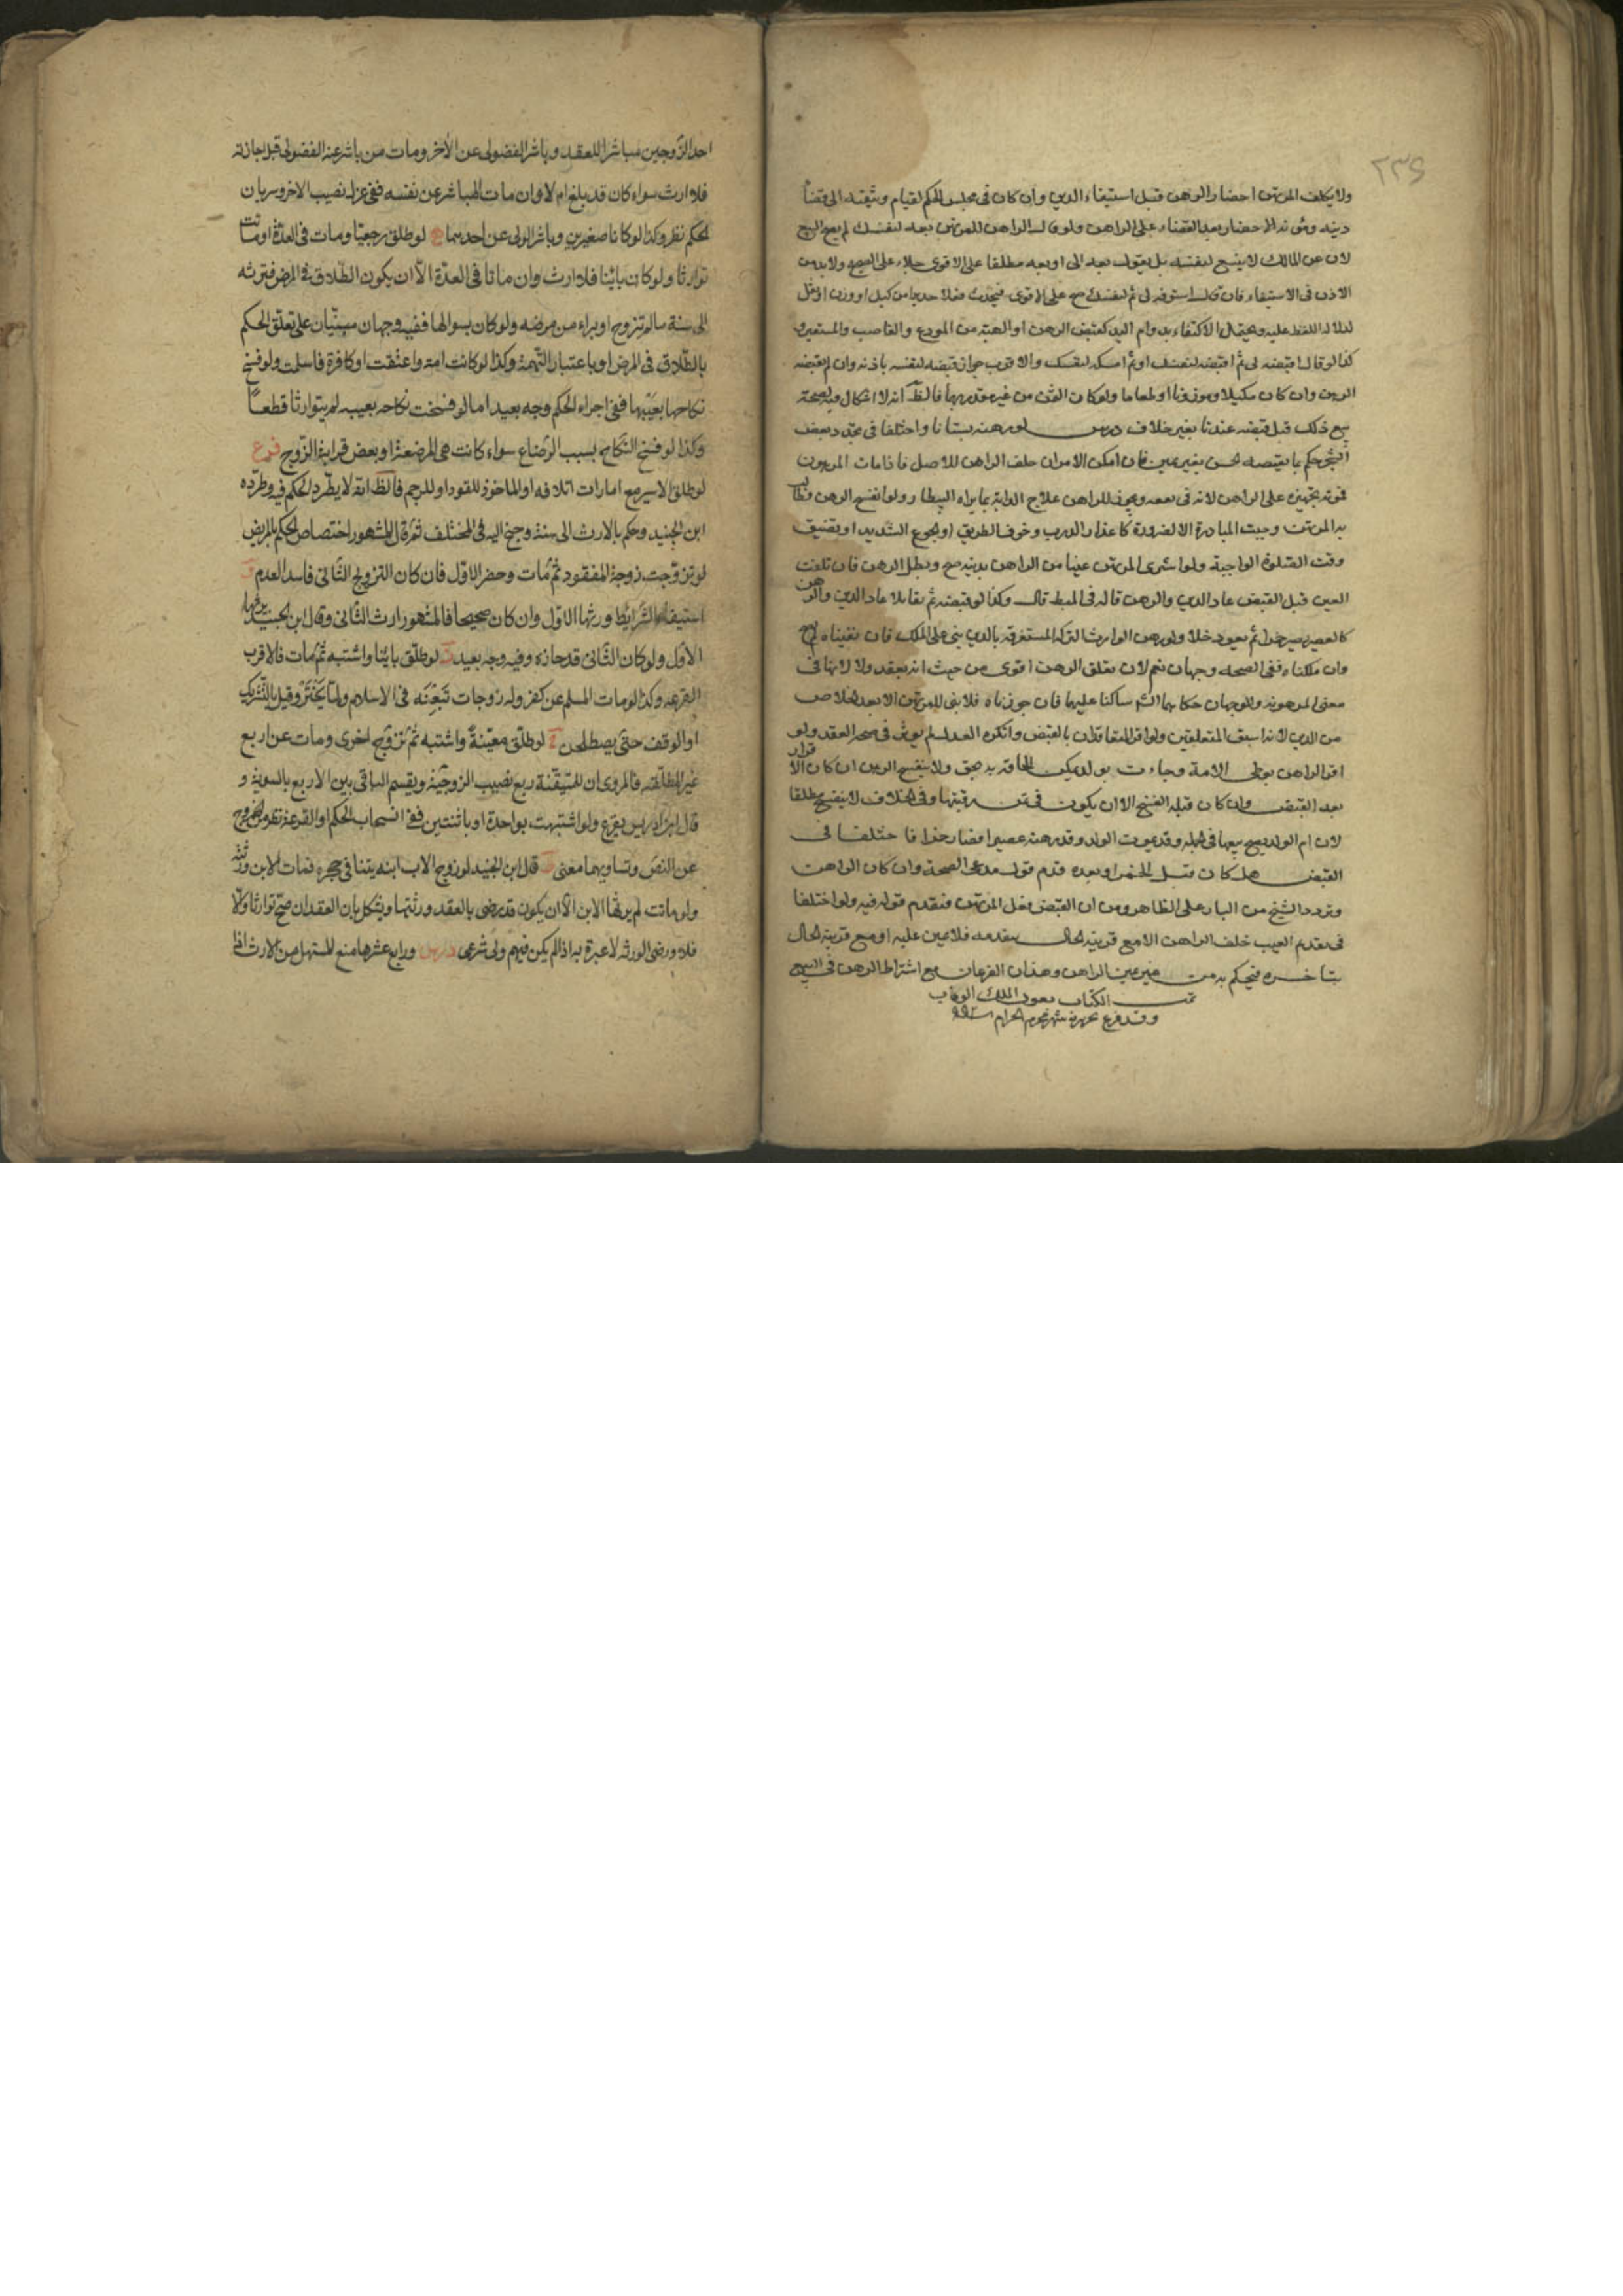 ٢٣٤
ولا يكلف المرتهن احضار الرهن قبل استيفاء الدين وان كان في مجلس الحكم لقيام وثيقته الى قضاء
دينه ومؤنة الاحضار بعد القضاء على الراهن ولو قال الراهن للمرتهن بعه لنفسك لم يصح البيع
لان غير المالك لا يبيع لنفسه بل يقول بعه لي او بعه مطلقا على الاقوى حملا على الصحيح ولا بد من
الاذن في الاستيفاء فان قال استوفه لي ثم لنفسك صح على الاقوى فيحدث فعلا جديدا من كيل او وزن او نقل
لدلالة اللفظ عليه ويحتمل الاكتفاء بدوام اليد كقبض الرهن او الهبة من المودع والغاصب والمستعير و
كذا لو قال اقبضه لي ثم اقبضه لنفسك او ثم امسكه لنفسك والاقرب جواز قبضه لنفسه باذنه وان لم يقبضه
الرهن وان كان مكيلا وموزونا او طعاما ولو كان الثمن من غيره فالظاهر انه لا اشكال فيه لصحة
بيع ذلك قبل قبضه عندنا بغير خلاف درس لو رهنه بستانا واختلفا في تجدد بعض
الشجر حكم بما يقتضيه الحس بغير يمين فان امكن الامران حلف الراهن للاصل فاذا مات المرهون
فمؤنة تجهيزه على الراهن لانه في نفقته ويجوز للراهن علاج الدابة بما يراه البيطار ولو انفسخ الرهن وطالب
به المرتهن وجبت المبادرة الا لضرورة كاغلاق الدرب وخوف الطريق او الجوع الشديد او تضيق
وقت الصلوة الواجبة ولو اشترى المرتهن عينا من الراهن بدينه صح وبطل الرهن فان تلفت
العين قبل القبض عاد الدين والرهن قاله في المبسط قال وكذا لو قبضه ثم تقايلا عاد الدين والرهن
كالعصير يصير خمرا ثم يعود خلا ولو رهن الوارث التركة المستغرقة بالدين بني على الملك فان نفيناه لم يصح
وان ملكناه ففي الصحة وجهان نعم لان تعلق الرهن اقوى من حيث انه بعقد ولا لانها في
معنى المرهونة والوجهان حكاهما الشيخ ساكتا عليهما فان جوزناه فلا شئ للمرتهن الا بعد الخلاص
من الدين لانه اسبق المتعلقين ولو اقر المتعاقدان بالقبض وانكره العدل لم يؤثر في صحة العقد ولو
اقر الراهن بوطى الامة وجاءت بولد يمكن الحاقه به صح ولا ينفسخ الرهن ان كان الاقرار
بعد القبض وان كان قبله انفسخ الا ان يكون في ثمن رقبتها وفي الخلاف لا ينفسخ مطلقا
لان ام الولد يصح بيعها في الجملة وقد يموت الولد وقد رهنه عصيرا فصار خمرا فاختلفا في
القبض هل كان قبل الخمر او بعده قدم قول مدعي الصحة وان كان الراهن
وتردد الشيخ من البناء على الظاهر ومن ان القبض فعل المرتهن فيقدم قوله فيه ولو اختلفا
في تقدم العيب حلف الراهن الا مع قرينة الحال بتقدمه فلا يمين عليه او مع قرينة الحال
بتاخره فيحكم به من غير يمين الراهن وهذان الفرعان مع اشتراط الرهن في البيع
تمت الكتاب بعون الملك الوهاب
وقد فرغ تحريره شهر محرم الحرام
احد الزوجين مباشرا للعقد وباشر الفضولي عن الآخر ومات من باشر عنه الفضولي قبل اجازته
فلا ارث سواء كان قد بلغ ام لا وان مات المباشر عن نفسه ففي عزل نصيب الاخر وسريان
الحكم نظر وكذا لو كانا صغيرين وباشر الولي عن احدهما لو طلق رجعيا ومات في العدة او ماتت
توارثا ولو كان باينا فلا ارث وان ماتا في العدة الا ان يكون الطلاق في المرض فترثه
الى سنة ما لم تتزوج او يبرء من مرضه ولو كان بسؤالها ففيه وجهان مبنيان على تعلق الحكم
بالطلاق في المرض او باعتبار التهمة وكذا لو كانت امة واعتقت او كافرة فاسلمت ولو فسخ
نكاحها بعيبها ففي اجراء الحكم وجه بعيد اما لو فسخت نكاحه بعيبه لم يتوارثا قطعا
وكذا لو فسخ النكاح بسبب الرضاع سواء كانت هي المرضعة او بعض قرابة الزوج فرع
لو طلق الاسير مع امارات اتلافه او الماخوذ للقود او للرجم فالظ انه لا يطرد الحكم فيه وطرده
ابن الجنيد وحكم بالارث الى سنة وجنح اليه في المختلف ثم قال المشهور اختصاص الحكم بالمريض
لو تزوجت زوجة المفقود ثم مات وحضر الاول فان كان التزويج الثاني فاسدا لعدم
استيفاء الشرايط ورثها الاول وان كان صحيحا فالمشهور ارث الثاني وقال ابن الجنيد يرثها
الاول ولو كان الثاني قد حازه وفيه وجه بعيد لو طلق باينا واشتبه ثم مات فالاقرب
القرعة وكذا لو مات المسلم عن كفر وله زوجات تبعنه في الاسلام ولما يختر وقيل بالتشريك
او الوقف حتى يصطلحن لو طلق معينة واشتبه ثم تزوج اخرى ومات عن اربع
غير المطلقة فالمروي ان للمتيقنة ربع نصيب الزوجية ويقسم الباقي بين الاربع بالسوية و
قال ابن ادريس يقرع ولو اشتبهت بواحدة او باثنتين ففي انسحاب الحكم او القرعة نظر من الخروج
عن النص وتساويهما معنى قال ابن الجنيد لو زوج الاب ابنه يتيما في حجره فمات الابن ورثته
ولو ماتت لم يرثها الابن الا ان يكون قد رضي بالعقد ورثتها ويشكل بان العقد ان صح توارثا والا
فلا ورضى الورثة لا عبرة به اذا لم يكن فيهم ولي شرعي درس ورابع عشرها منع المستهل من الارث